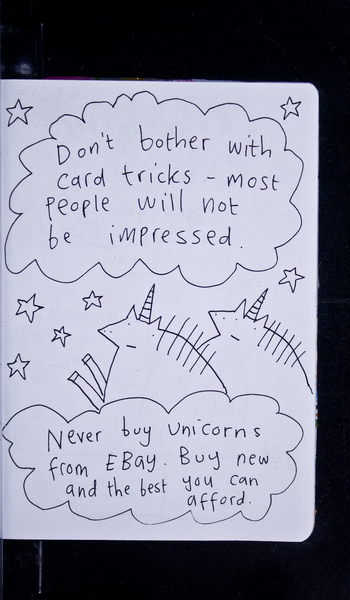 Don't bother with
card tricks - most
people will not
be impressed.
Never buy unicorns
from EBay. Buy new
and the best you can
afford.